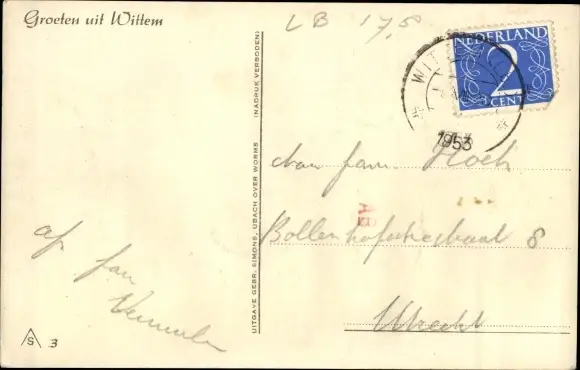 Groeten uit Wittem
LB 17,5
NEDERLAND
2
CENT
WIT
1953
UITGAVE GEBR. SIMONS, UBACH OVER WORMS (NADRUK VERBODEN)
Aan fam.
AB
8
Utrecht
af. fam
S 3